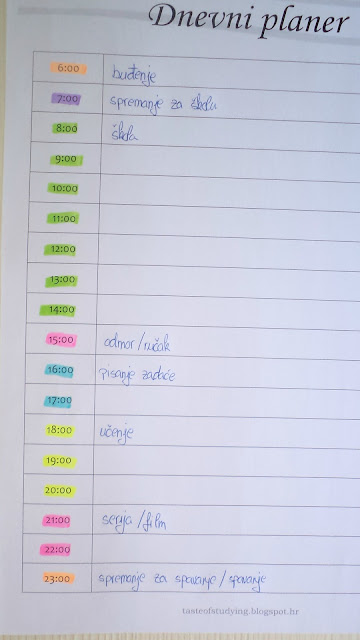 Dnevni planer
6:00 buđenje
7:00 spremanje za školu
8:00 škola
9:00
10:00
11:00
12:00
13:00
14:00
15:00 odmor/ručak
16:00 pisanje zadaće
17:00
18:00 učenje
19:00
20:00
21:00 serija/film
22:00
23:00 spremanje za spavanje/spavanje
tasteofstudying.blogspot.hr